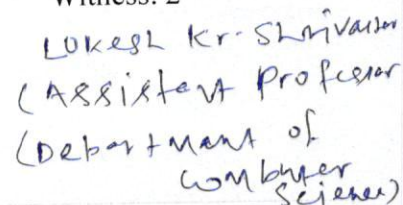 Witness: 2
Lokesh Kr. Shrivastav
(Assistant Professor
(Department of
Computer
Science)